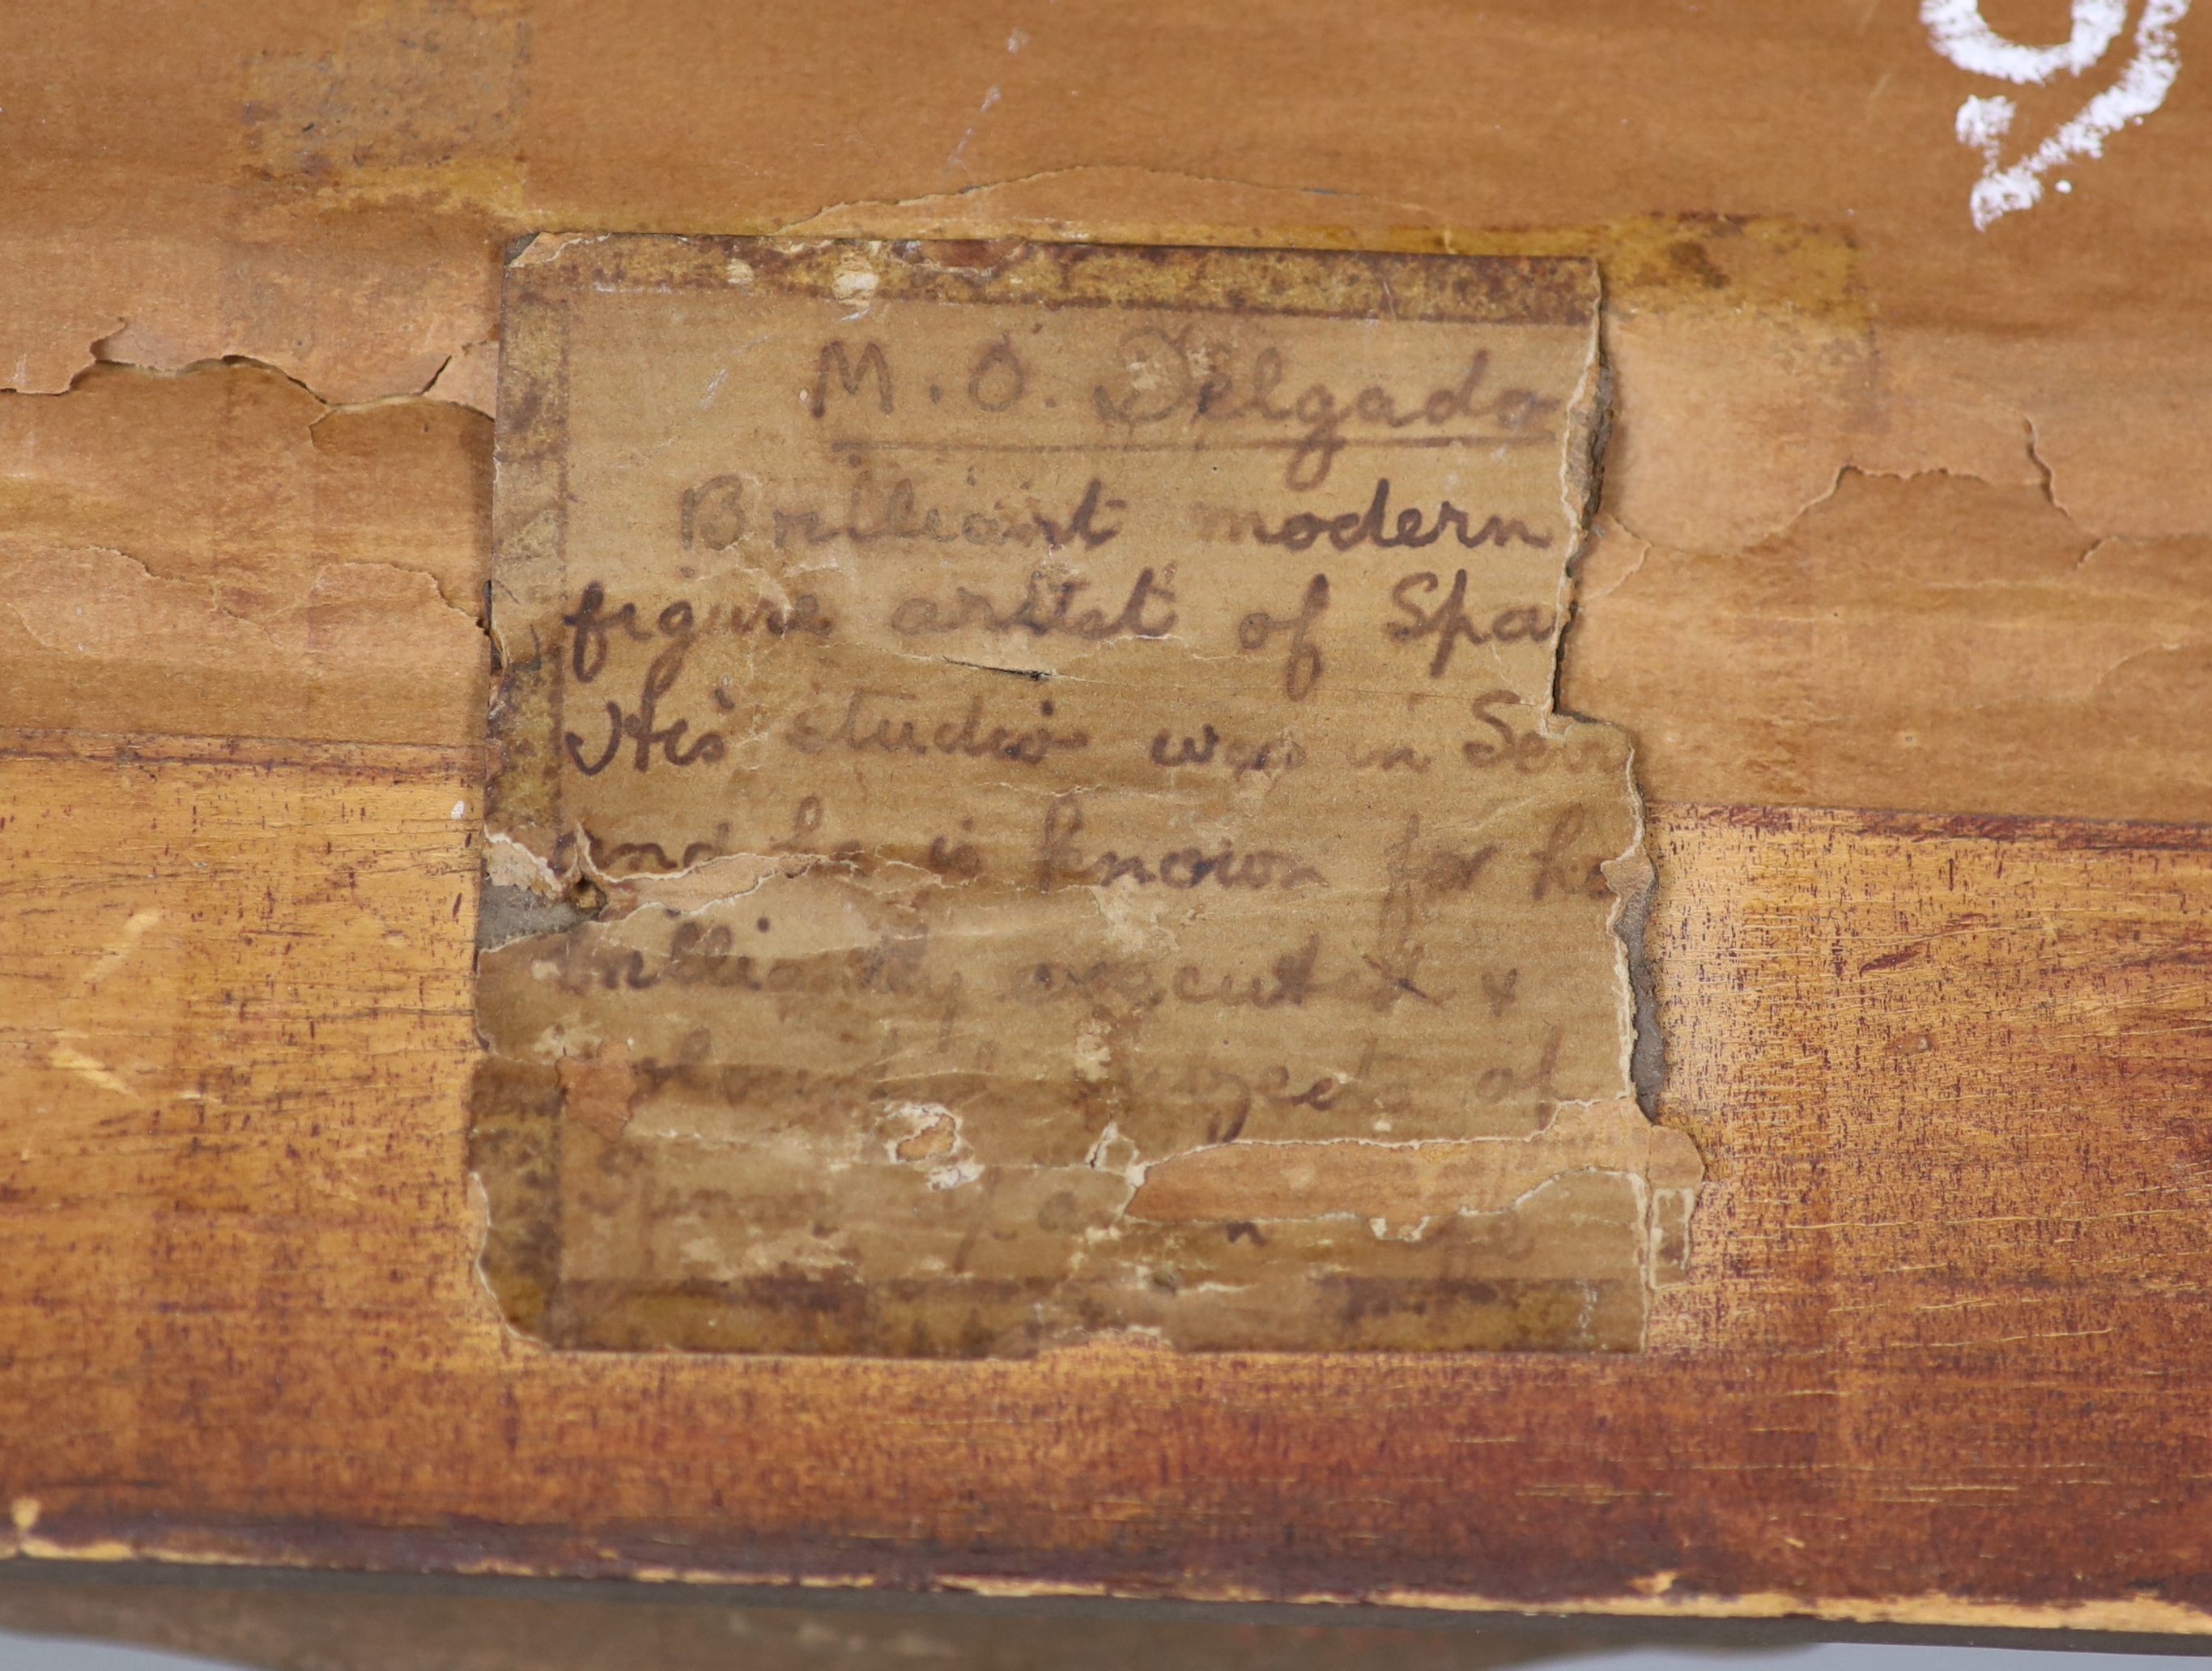 M. O. Delgado
Brilliant modern
figure artist of Spa
His studio was in Sev
and he is known for h
brilliantly executed &
subjects of